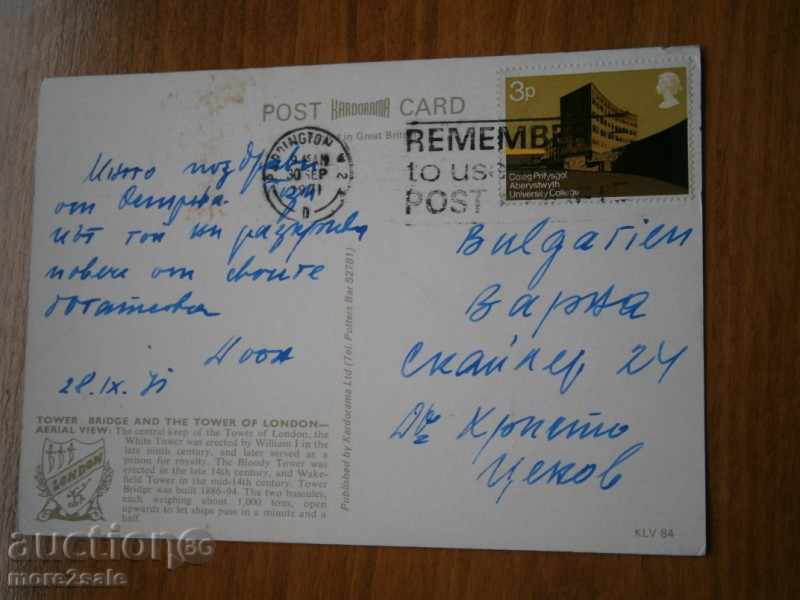 POST KARDORAMA CARD
in Great Britain
PADDINGTON W2
AM
30 SEP
1971
D
REMEMBER
to use
POST
3p
Coleg Prifysgol
Aberystwyth
University College
поздрави
от
той ни разкрива
повече от своите
богатства
28.IX.71
Bulgarien
Варна
Скайлер 24
Др Христо
Цеков
Published by Kardorama Ltd (Tel. Potters Bar 52781)
TOWER BRIDGE AND THE TOWER OF LONDON—
AERIAL VIEW: The central keep of the Tower of London, the
White Tower was erected by William I in the
late ninth century, and later served as a
prison for royalty. The Bloody Tower was
erected in the late 14th century, and Wake-
field Tower in the mid-14th century. Tower
Bridge was built 1886-94. The two bascules,
each weighing about 1,000 tons, open
upwards to let ships pass in a minute and a
half.
LONDON
KLV 84
auction BG
more2sale